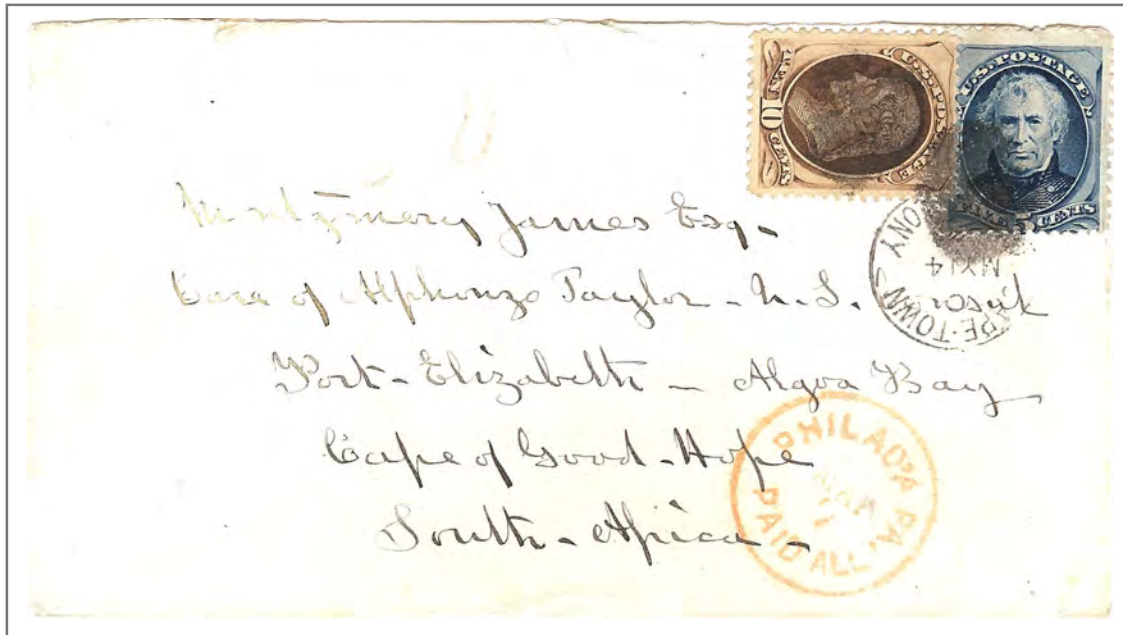 U.S. POSTAGE
TEN 10 CENTS
U.S. POSTAGE
FIVE 5 CENTS
Montgomery James Esq-
Care of Alphonzo Taylor - U. S.
Port-Elizabeth - Algoa Bay
Cape of Good-Hope
South-Africa-
CAPE-TOWN COLONY
MY 14
PHILAD'A PA.
PAID ALL